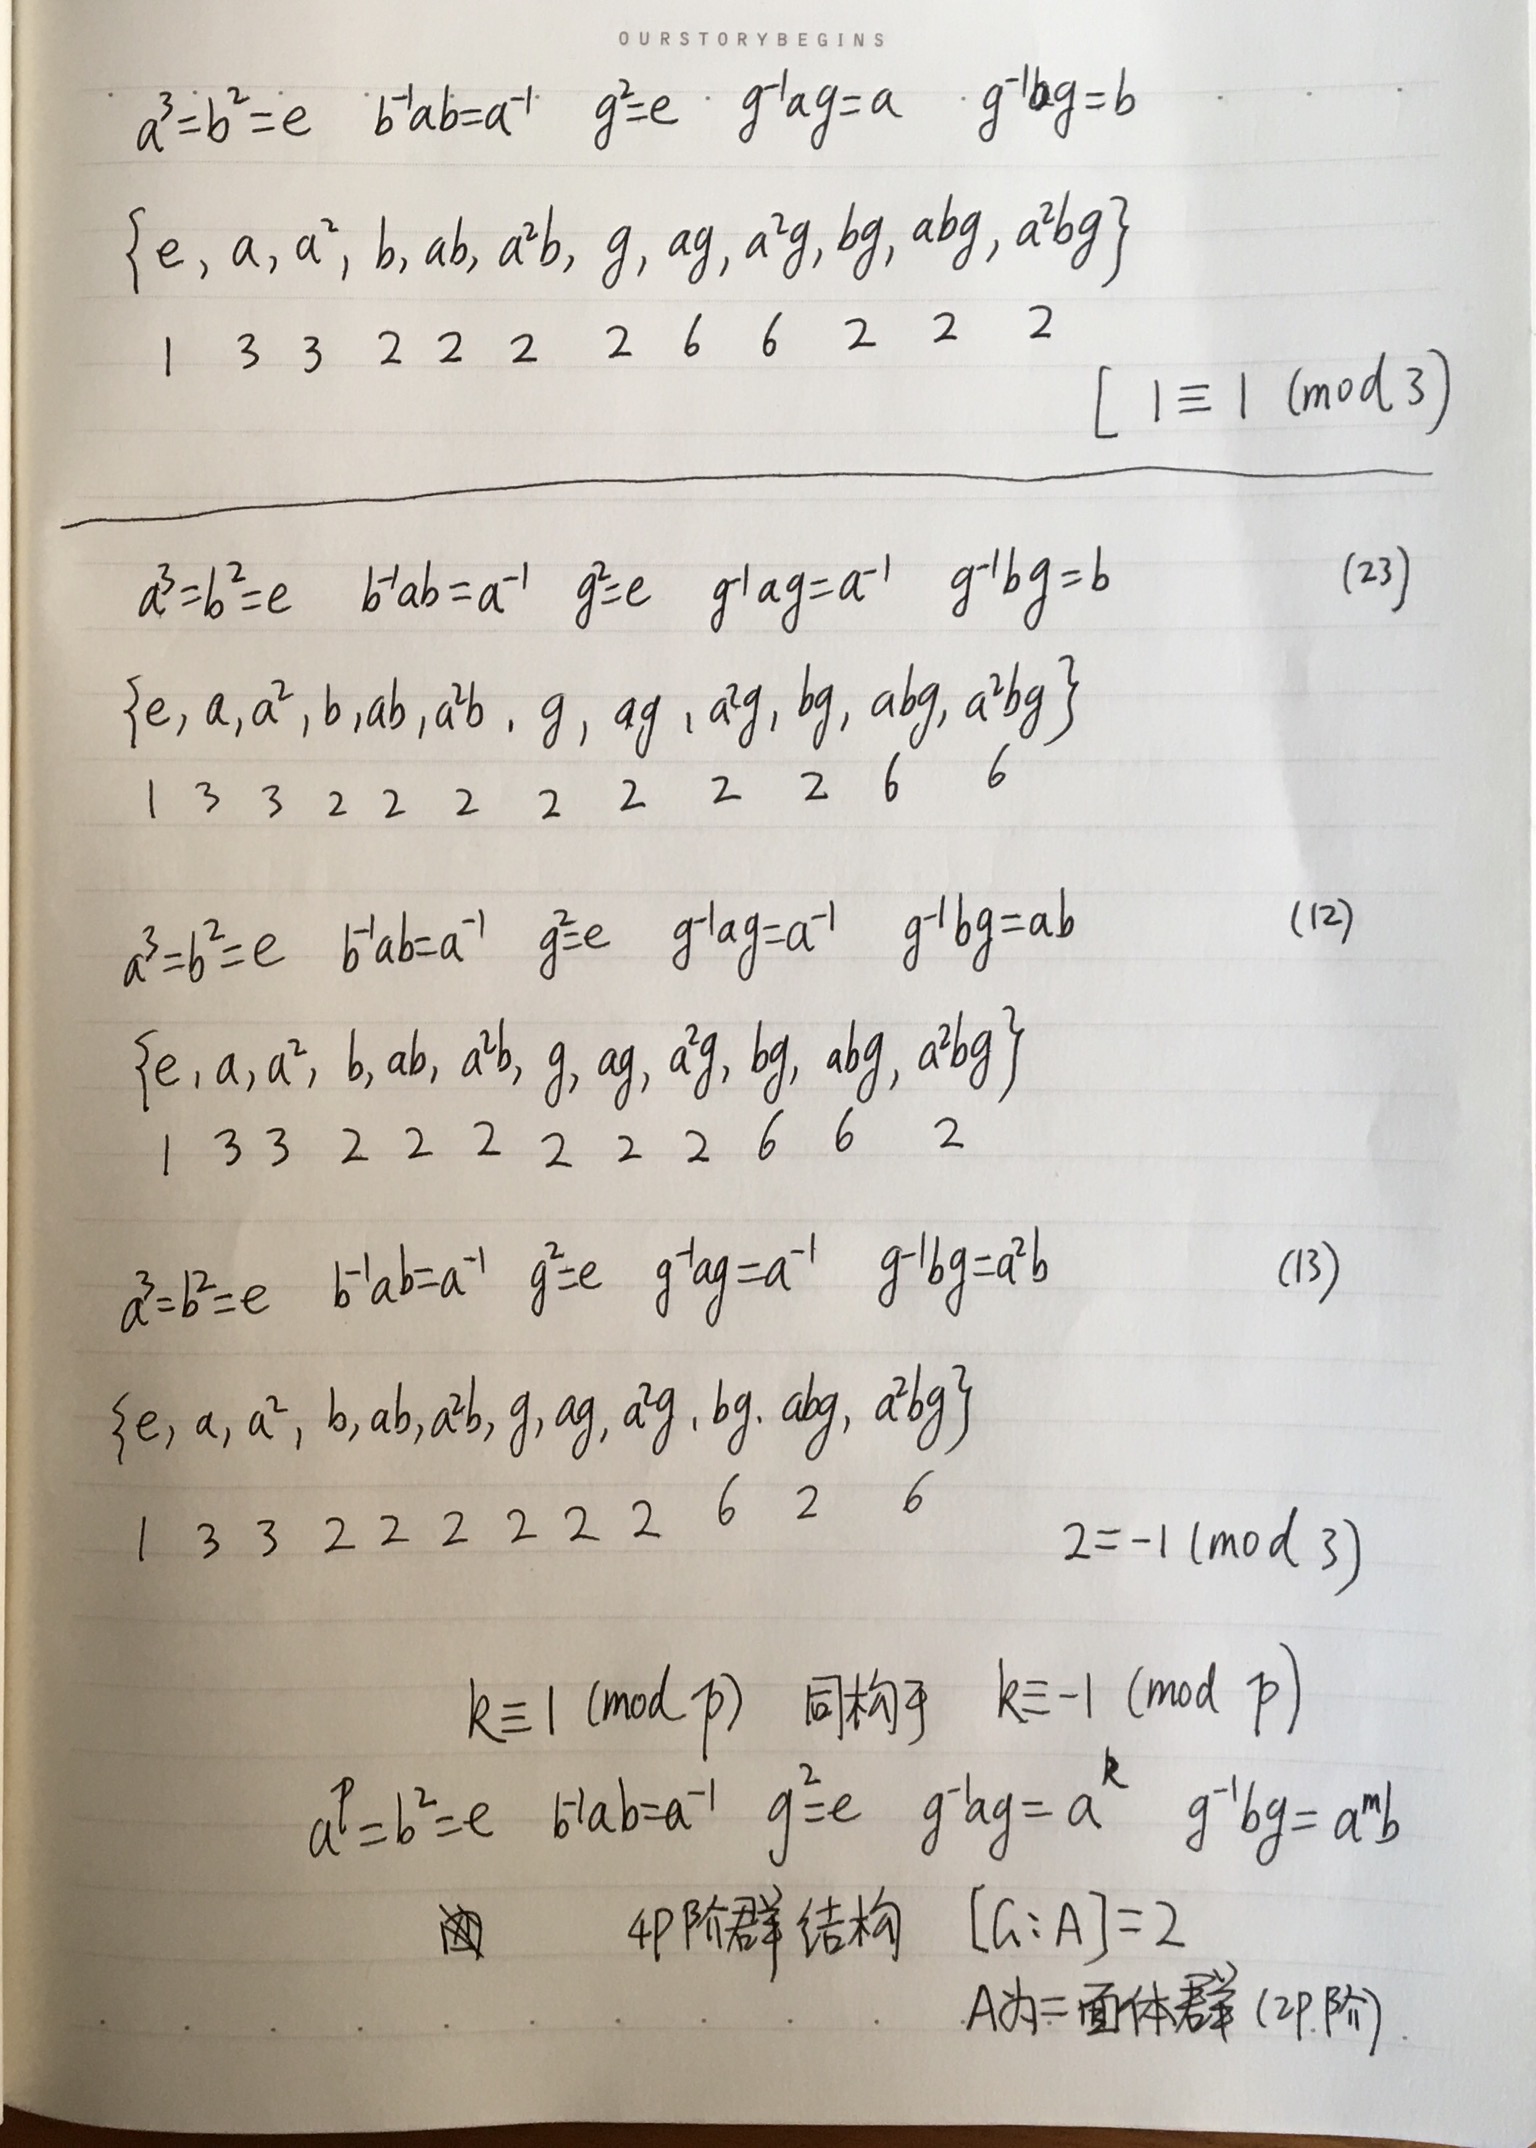 OURSTORYBEGINS
a³=b²=e b⁻¹ab=a⁻¹ g²=e g⁻¹ag=a g⁻¹bg=b
{e, a, a², b, ab, a²b, g, ag, a²g, bg, abg, a²bg}
1 3 3 2 2 2 2 6 6 2 2 2
[ 1≡1 (mod 3)
a³=b²=e b⁻¹ab=a⁻¹ g²=e g⁻¹ag=a⁻¹ g⁻¹bg=b (23)
{e, a, a², b, ab, a²b, g, ag, a²g, bg, abg, a²bg}
1 3 3 2 2 2 2 2 2 2 6 6
a³=b²=e b⁻¹ab=a⁻¹ g²=e g⁻¹ag=a⁻¹ g⁻¹bg=ab (12)
{e, a, a², b, ab, a²b, g, ag, a²g, bg, abg, a²bg}
1 3 3 2 2 2 2 2 2 6 6 2
a³=b²=e b⁻¹ab=a⁻¹ g²=e g⁻¹ag=a⁻¹ g⁻¹bg=a²b (13)
{e, a, a², b, ab, a²b, g, ag, a²g, bg. abg, a²bg}
1 3 3 2 2 2 2 2 2 6 2 6
2=-1 (mod 3)
k≡1 (mod p) 同构于 k≡-1 (mod p)
aᵖ=b²=e b⁻¹ab=a⁻¹ g²=e g⁻¹ag=aᵏ g⁻¹bg=aᵐb
4p阶群结构 [G:A]=2
A为二面体群(2p阶)